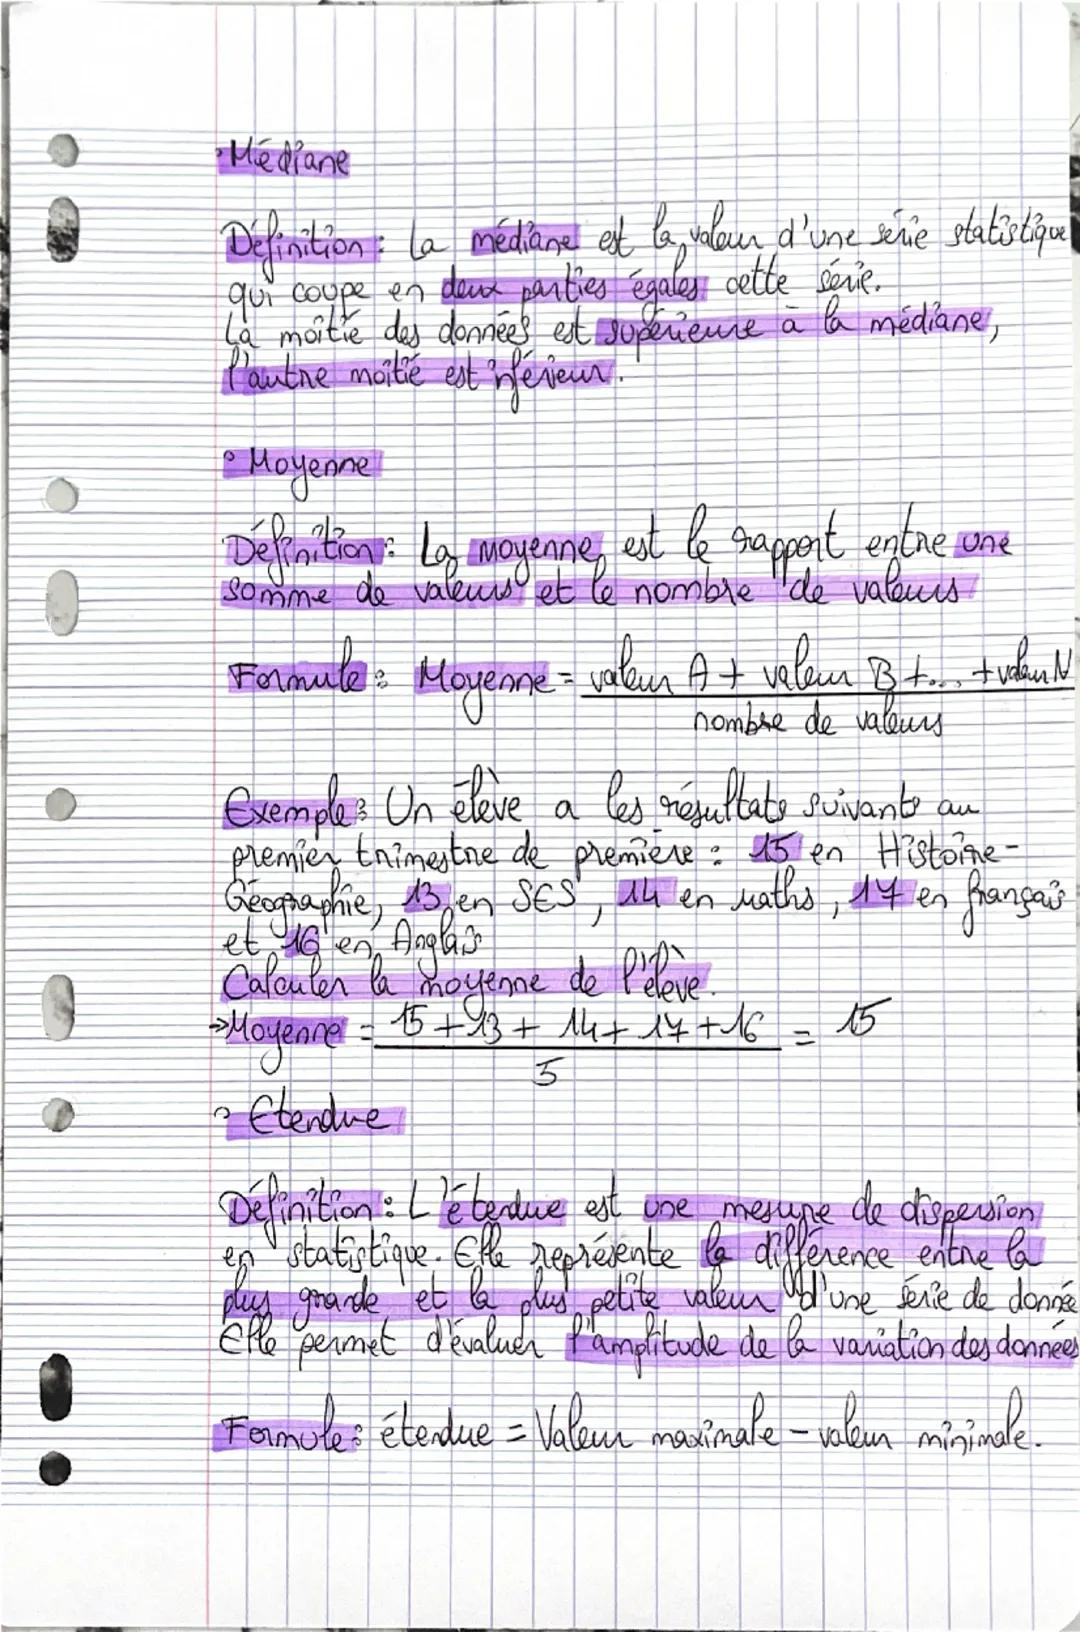 • Médiane
Définition : La médiane est la valeur d'une série statistique
qui coupe en deux parties égales cette série.
La moitié des données est supérieure à la médiane,
l'autre moitié est inférieur.
• Moyenne
Définition : La moyenne est le rapport entre une
somme de valeurs et le nombre de valeurs
Formule : Moyenne = valeur A + valeur B + ... + valeur N
nombre de valeurs
Exemple : Un élève a les résultats suivants au
premier trimestre de première : 15 en Histoire-
Géographie, 13 en SES, 14 en maths, 17 en français
et 16 en Anglais
Calculer la moyenne de l'élève.
→ Moyenne = 15 + 13 + 14 + 17 + 16 = 15
5
• Etendue
Définition : L'étendue est une mesure de dispersion
en statistique. Elle représente la différence entre la
plus grande et la plus petite valeur d'une série de donnée
Elle permet d'évaluer l'amplitude de la variation des données
Formule : étendue = Valeur maximale - valeur minimale.